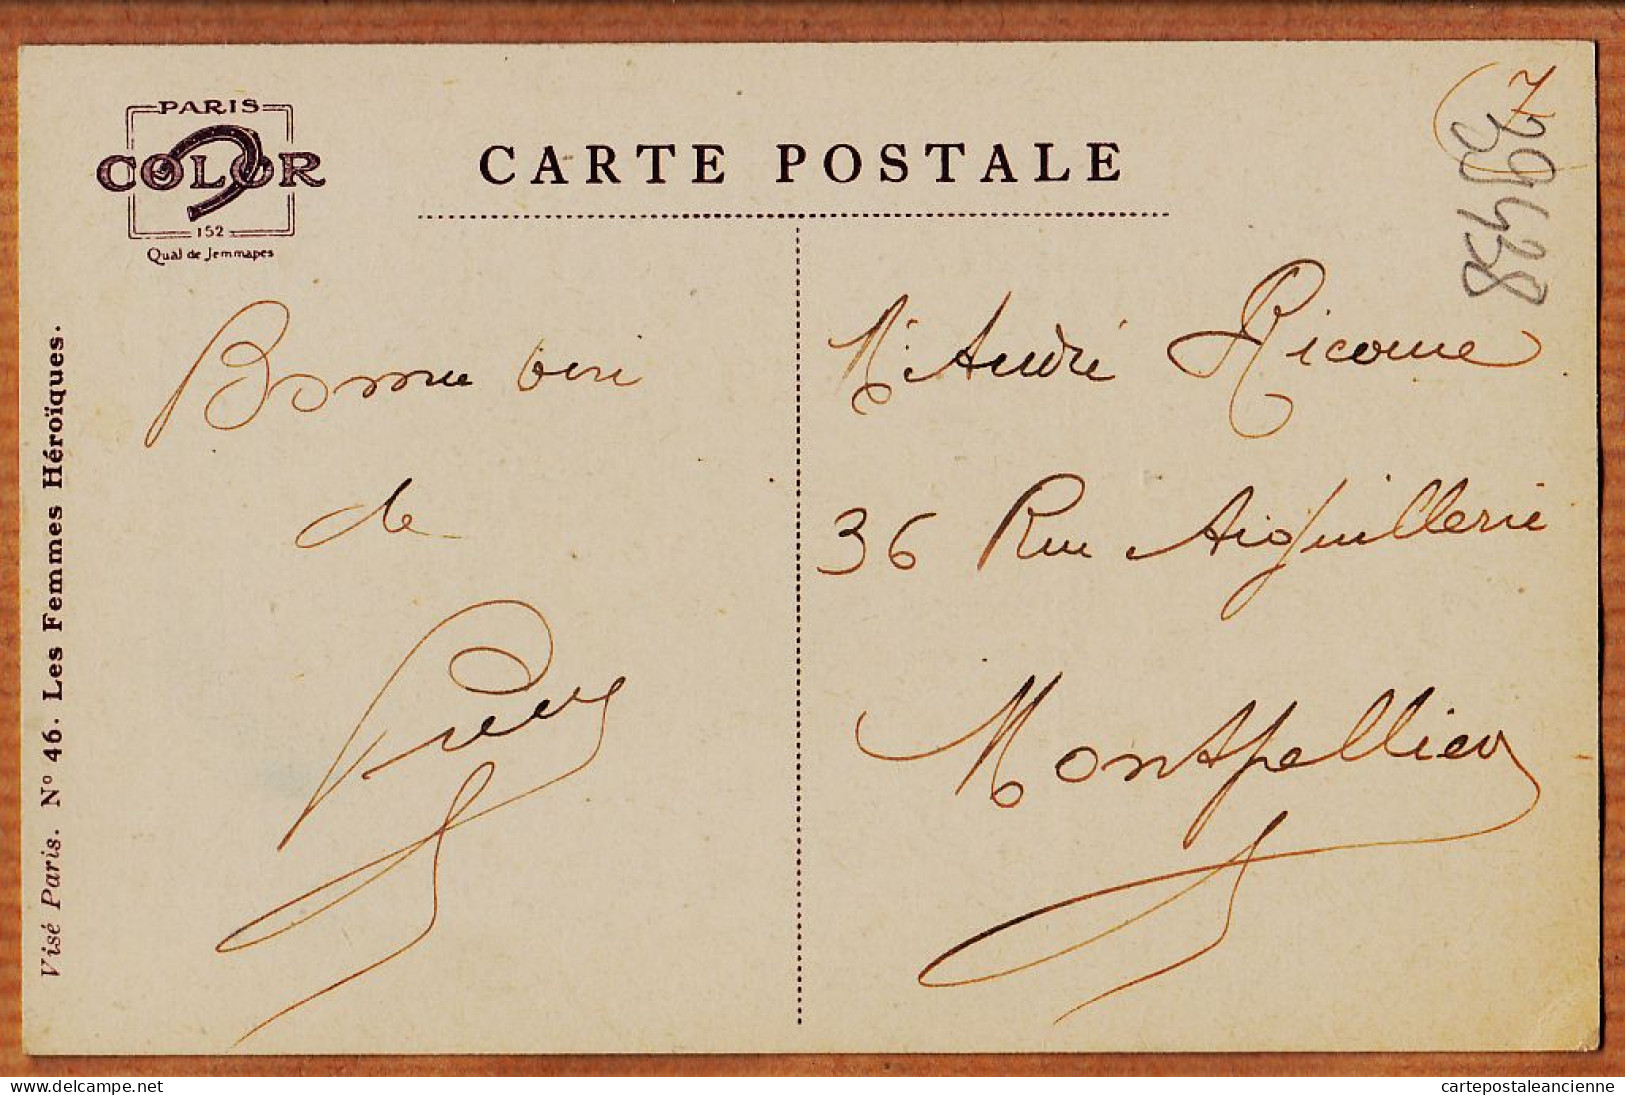 PARIS
COLOR
152
Quai de Jemmapes
CARTE POSTALE
Visé Paris. N° 46. Les Femmes Héroïques.
de
Mr André Ricome
36 Rue Aiguillerie
Montpellier
7
39428
29428
delcampe.net
cartepostaleancienne